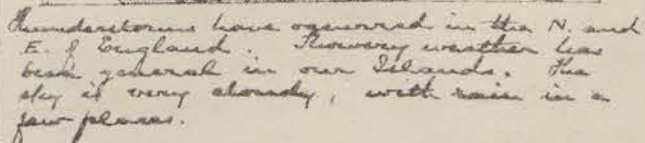 Thunderstorms have occurred in the N. and
E. of England. Showery weather has
been general in our Islands. The
sky is very cloudy, with rain in a
few places.